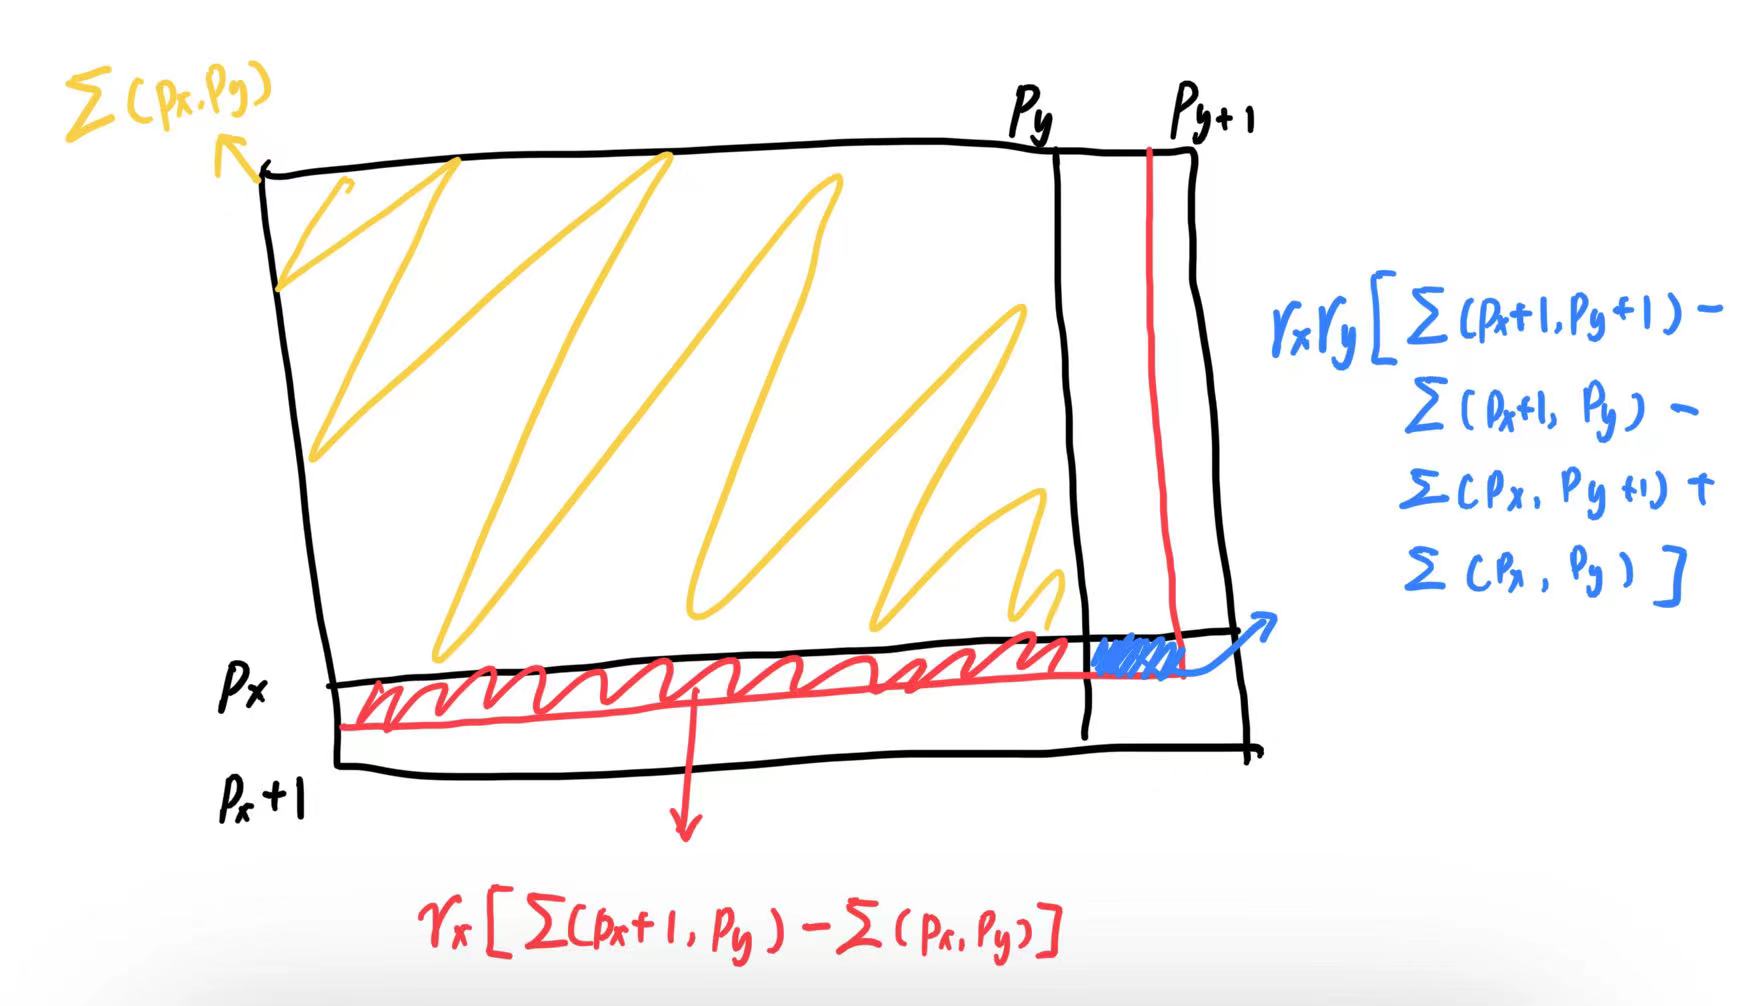 Σ(Px,Py)
Py
Py+1
rxry[Σ(Px+1,Py+1)-
Σ(Px+1, Py)-
Σ(Px, Py+1)+
Σ(Px, Py)]
Px
Px+1
rx[Σ(Px+1, Py)-Σ(Px,Py)]